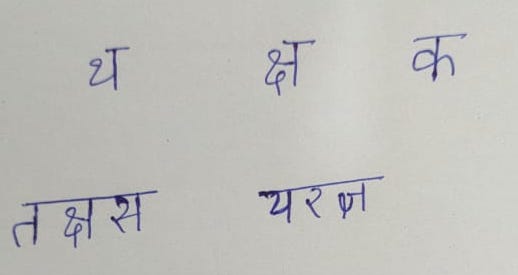 थ क्ष क
तक्षस यरज्ञ